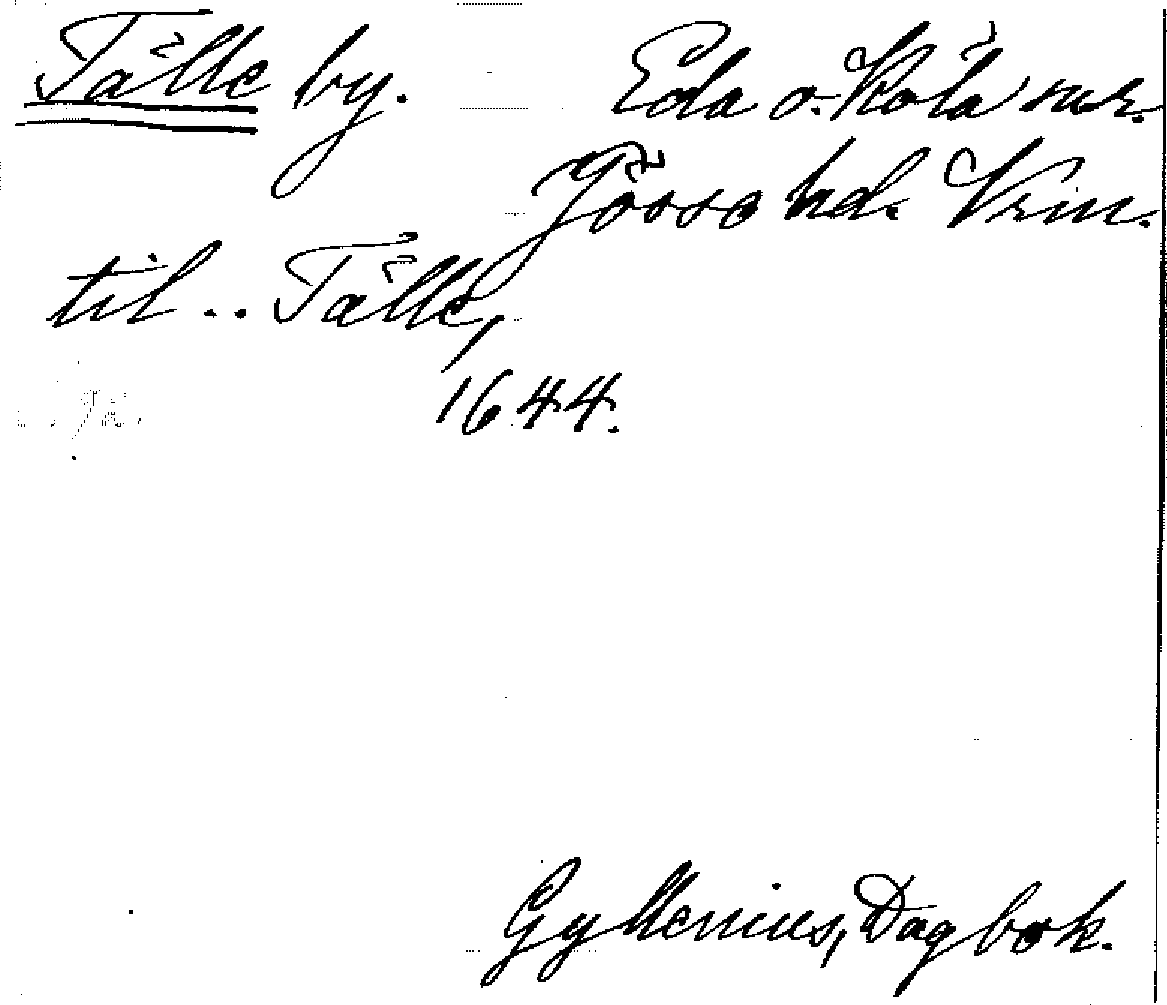 Tälle by. Eda o. Köla snr.
Jösse hd. Vrm.
til .. Tälle,
1644.
Gyllenius, Dagbok.